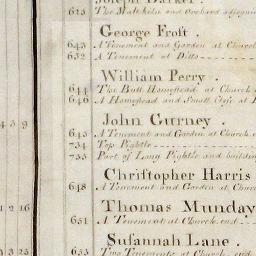 Joseph Barker.
625 The Malthouse and Orchard adjoining
George Frost.
643 A Tenement and Garden at Church
652 A Tenement at Ditto
William Perry.
644 The Bull Homestead at Church
640 A Homestead and Small Close at
John Gurney.
4 3 9 645 A Tenement and Garden at Church
734 Top Pightle
735 Part of Long Pightle and building
Christopher Harris
648 A Tenement and Garden at Church
Thomas Munday
1 2 16 651 A Tenement at Church end
Susannah Lane.
0 3 25 653 Two Tenements at Church end